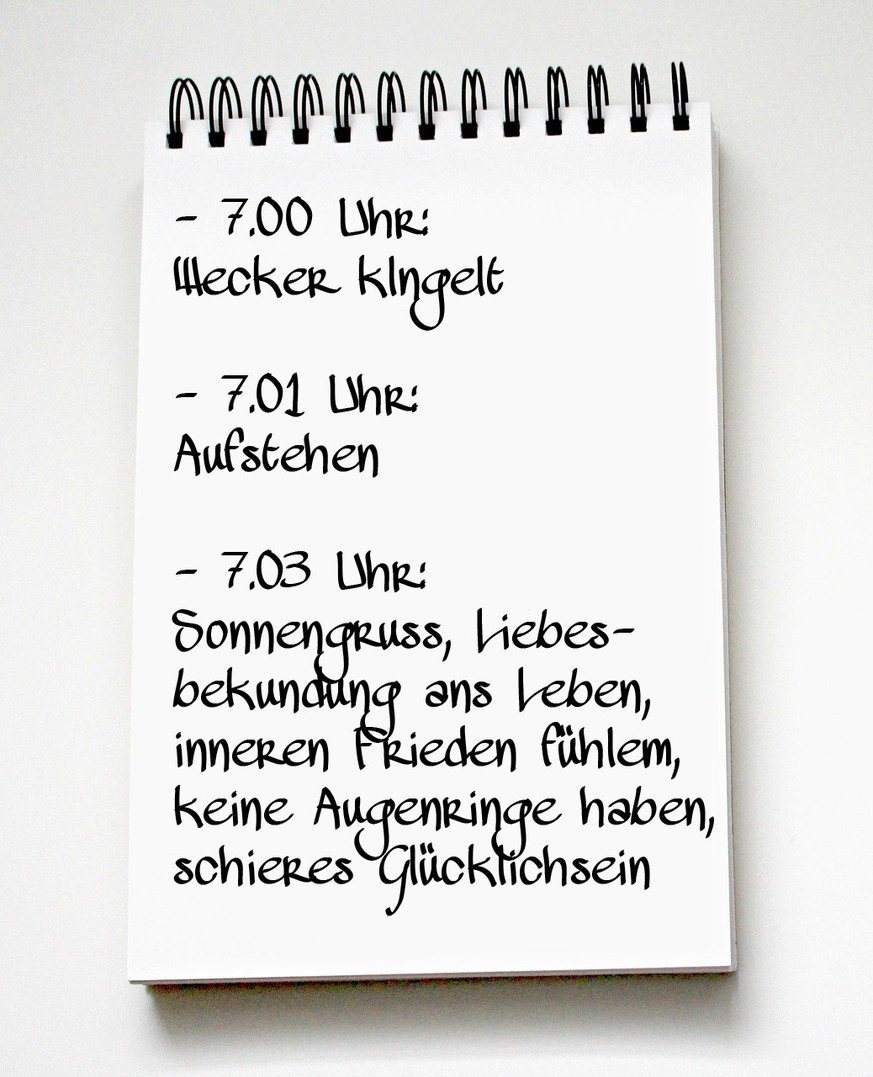 - 7.00 Uhr:
Wecker klngelt
- 7.01 Uhr:
Aufstehen
- 7.03 Uhr:
Sonnengruss, Liebes-
bekundung ans Leben,
inneren Frieden fühlem,
keine Augenringe haben,
schieres Glücklichsein